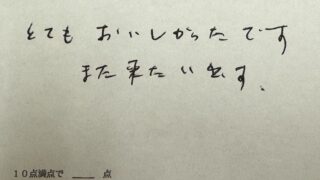 とても おいしかったです
また来たいです.
10点満点で ＿＿ 点